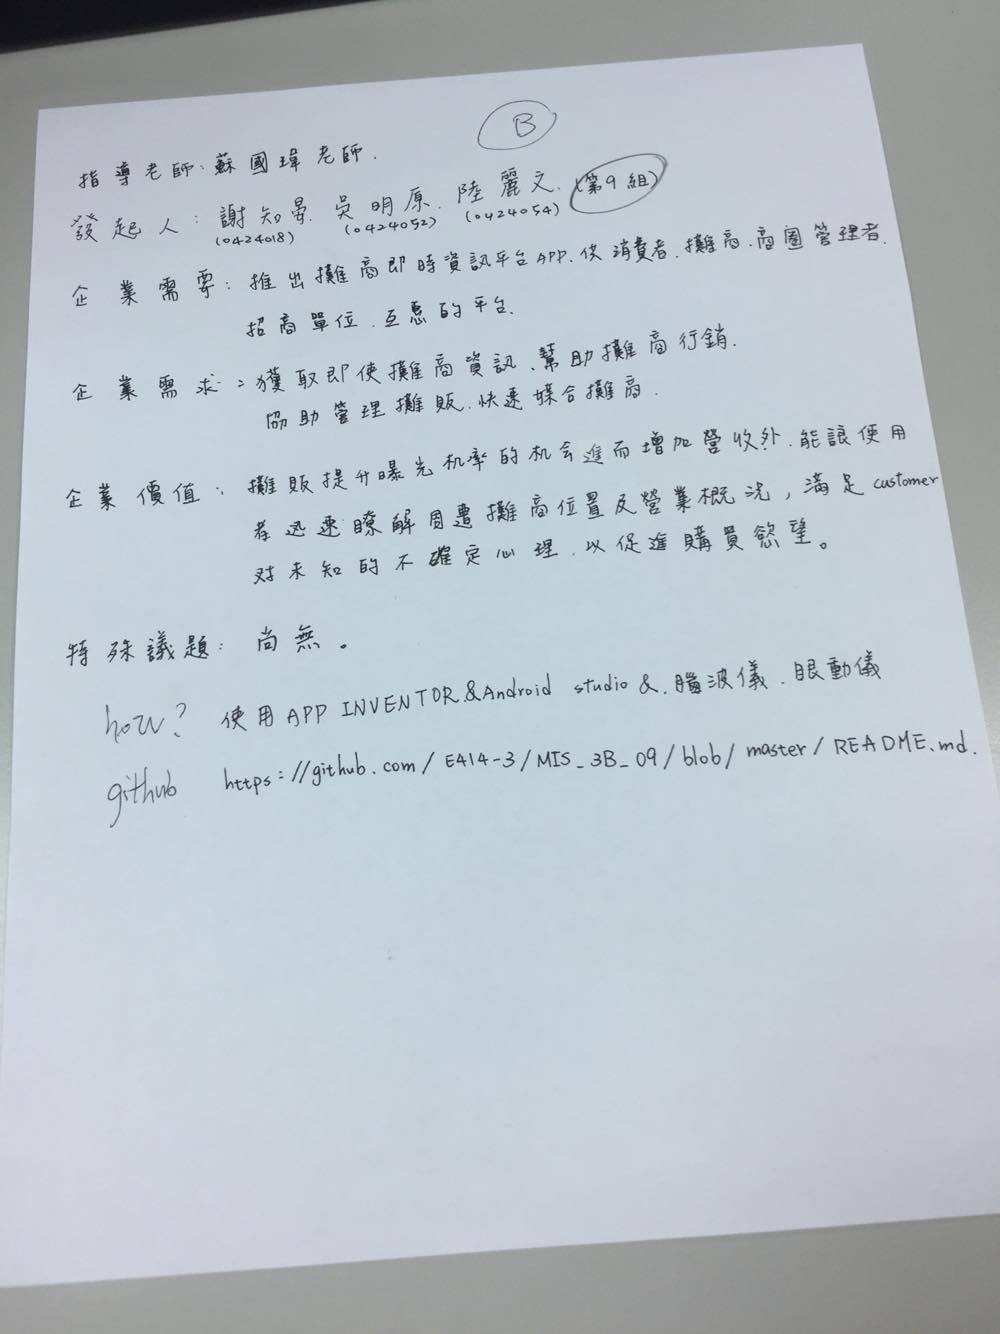 B
指導老師:蘇國瑋老師.
發起人:謝知晏.吳明原.陸麗文.(第9組)
(0424018) (0424052) (0424054)
企業需要:推出攤商即時資訊平台APP.供消費者.攤商.商圈管理者.
招商單位.互惠的平台.
企業需求:獲取即使攤商資訊.幫助攤商行銷.
協助管理攤販.快速媒合攤商.
企業價值:攤販提升曝光机率的机会進而增加營收外.能讓使用
者迅速瞭解周遭攤商位置及營業概況,滿足customer
对未知的不確定心理.以促進購買慾望。
特殊議題:尚無。
how? 使用APP INVENTOR&Android studio &.腦波儀.眼動儀
github https://github.com/E414-3/MIS_3B_09/blob/master/README.md.